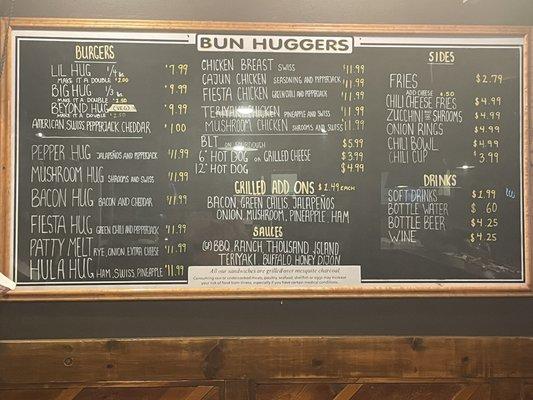 BUN HUGGERS
BURGERS
LIL HUG 1/4 lb. $7.99
MAKE IT A DOUBLE $2.00
BIG HUG 1/3 lb. $9.99
MAKE IT A DOUBLE $2.50
BEYOND HUG (VEG) $9.99
MAKE IT A DOUBLE $2.50
AMERICAN, SWISS, PEPPERJACK, CHEDDAR $1.00
PEPPER HUG JALAPEÑOS AND PEPPERJACK $11.99
MUSHROOM HUG SHROOMS AND SWISS $11.99
BACON HUG BACON AND CHEDDAR $11.99
FIESTA HUG GREEN CHILI AND PEPPERJACK $11.99
PATTY MELT RYE, ONION, EXTRA CHEESE $11.99
HULA HUG HAM, SWISS, PINEAPPLE $11.99
CHICKEN BREAST SWISS $11.99
CAJUN CHICKEN SEASONING AND PEPPERJACK $11.99
FIESTA CHICKEN GREEN CHILI AND PEPPERJACK $11.99
TERIYAKI CHICKEN PINEAPPLE AND SWISS $11.99
MUSHROOM CHICKEN SHROOMS AND SWISS $11.99
BLT ON SOURDOUGH $5.99
6" HOT DOG OR GRILLED CHEESE $3.99
12" HOT DOG $4.99
GRILLED ADD ONS $1.49 EACH
BACON, GREEN CHILIS, JALAPEÑOS
ONION, MUSHROOM, PINEAPPLE, HAM
SAUCES
BBQ, RANCH, THOUSAND ISLAND
TERIYAKI, BUFFALO, HONEY DIJON
All our sandwiches are grilled over mesquite charcoal
Consuming raw or undercooked meats, poultry, seafood, shellfish or eggs may increase
your risk of food born illness, especially if you have certain medical conditions.
SIDES
FRIES $2.79
ADD CHEESE $.50
CHILI CHEESE FRIES $4.99
ZUCCHINI OR SHROOMS $4.99
ONION RINGS $4.99
CHILI BOWL $4.99
CHILI CUP $3.99
DRINKS
SOFT DRINKS $1.99
BOTTLE WATER $.60
BOTTLE BEER $4.25
WINE $4.25